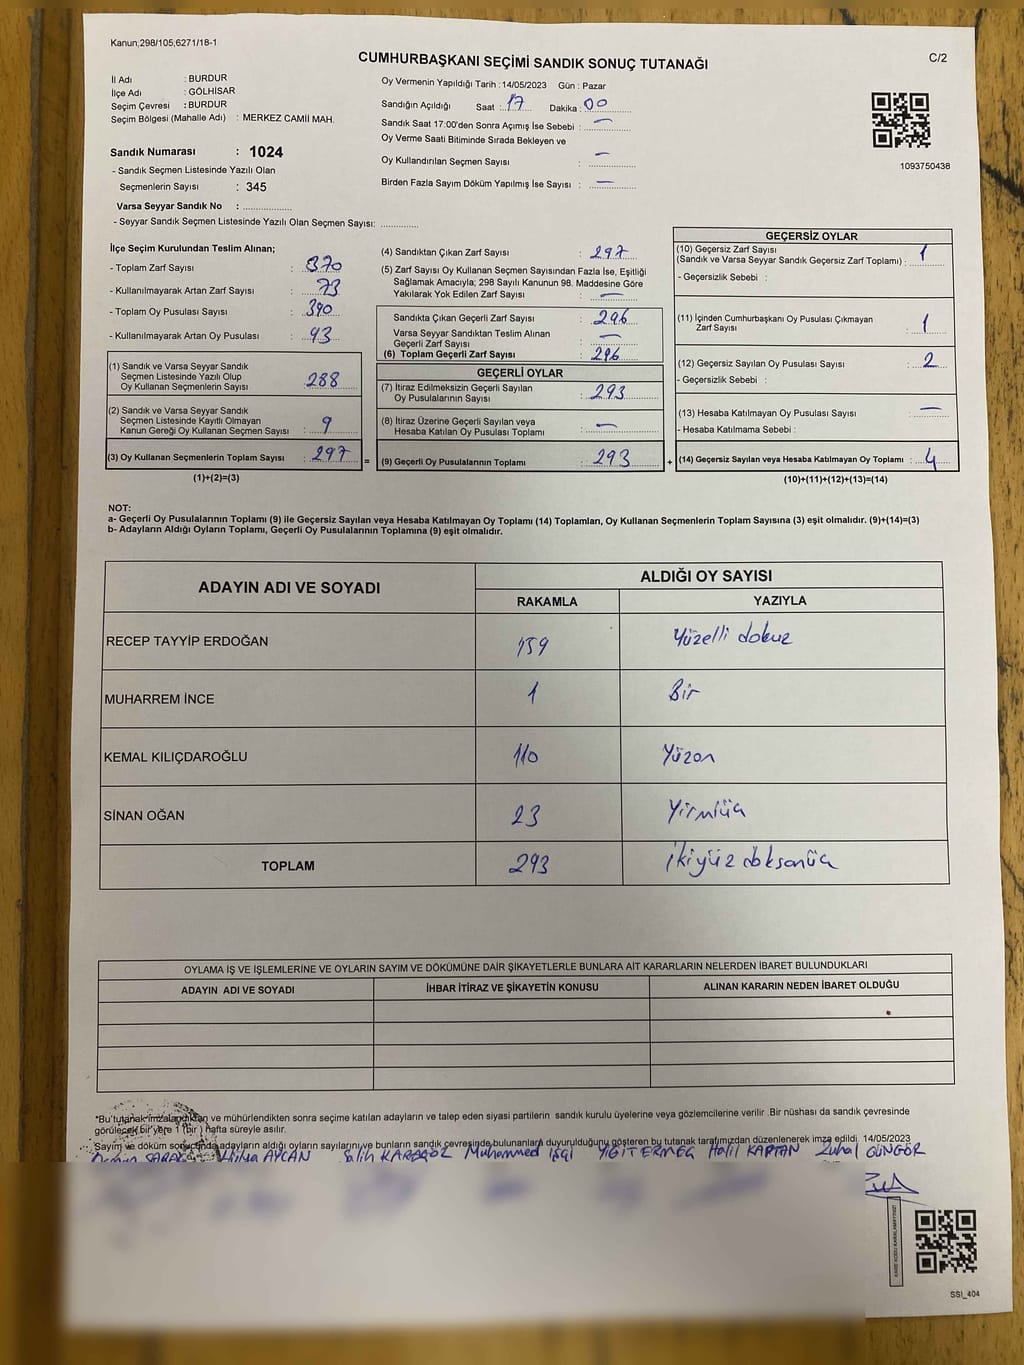 Kanun;298/105;6271/18-1
CUMHURBAŞKANI SEÇİMİ SANDIK SONUÇ TUTANAĞI
C/2
İl Adı : BURDUR
İlçe Adı : GÖLHİSAR
Seçim Çevresi : BURDUR
Seçim Bölgesi (Mahalle Adı) : MERKEZ CAMİİ MAH.
Sandık Numarası : 1024
- Sandık Seçmen Listesinde Yazılı Olan
Seçmenlerin Sayısı : 345
Varsa Seyyar Sandık No :
- Seyyar Sandık Seçmen Listesinde Yazılı Olan Seçmen Sayısı:
Oy Vermenin Yapıldığı Tarih : 14/05/2023 Gün : Pazar
Sandığın Açıldığı Saat : 17 Dakika : 00
Sandık Saat 17:00'den Sonra Açımış İse Sebebi : —
Oy Verme Saati Bitiminde Sırada Bekleyen ve
Oy Kullandırılan Seçmen Sayısı : —
Birden Fazla Sayım Döküm Yapılmış İse Sayısı : —
1093750438
İlçe Seçim Kurulundan Teslim Alınan;
- Toplam Zarf Sayısı : 370
- Kullanılmayarak Artan Zarf Sayısı : 73
- Toplam Oy Pusulası Sayısı : 390
- Kullanılmayarak Artan Oy Pusulası : 93
(1) Sandık ve Varsa Seyyar Sandık
Seçmen Listesinde Yazılı Olup
Oy Kullanan Seçmenlerin Sayısı : 288
(2) Sandık ve Varsa Seyyar Sandık
Seçmen Listesinde Kayıtlı Olmayan
Kanun Gereği Oy Kullanan Seçmen Sayısı : 9
(3) Oy Kullanan Seçmenlerin Toplam Sayısı : 297 =
(1)+(2)=(3)
(4) Sandıktan Çıkan Zarf Sayısı : 297
(5) Zarf Sayısı Oy Kullanan Seçmen Sayısından Fazla İse, Eşitliği
Sağlamak Amacıyla; 298 Sayılı Kanunun 98. Maddesine Göre
Yakılarak Yok Edilen Zarf Sayısı : —
Sandıkta Çıkan Geçerli Zarf Sayısı : 296
Varsa Seyyar Sandıktan Teslim Alınan
Geçerli Zarf Sayısı : —
(6) Toplam Geçerli Zarf Sayısı : 296
GEÇERLİ OYLAR
(7) İtiraz Edilmeksizin Geçerli Sayılan
Oy Pusulalarının Sayısı : 293
(8) İtiraz Üzerine Geçerli Sayılan veya
Hesaba Katılan Oy Pusulası Toplamı : —
(9) Geçerli Oy Pusulalarının Toplamı : 293 +
GEÇERSİZ OYLAR
(10) Geçersiz Zarf Sayısı
(Sandık ve Varsa Seyyar Sandık Geçersiz Zarf Toplamı) : 1
- Geçersizlik Sebebi :
(11) İçinden Cumhurbaşkanı Oy Pusulası Çıkmayan
Zarf Sayısı : 1
(12) Geçersiz Sayılan Oy Pusulası Sayısı : 2
- Geçersizlik Sebebi :
(13) Hesaba Katılmayan Oy Pusulası Sayısı : —
- Hesaba Katılmama Sebebi :
(14) Geçersiz Sayılan veya Hesaba Katılmayan Oy Toplamı : 4
(10)+(11)+(12)+(13)=(14)
NOT:
a- Geçerli Oy Pusulalarının Toplamı (9) ile Geçersiz Sayılan veya Hesaba Katılmayan Oy Toplamı (14) Toplamları, Oy Kullanan Seçmenlerin Toplam Sayısına (3) eşit olmalıdır. (9)+(14)=(3)
b- Adayların Aldığı Oyların Toplamı, Geçerli Oy Pusulalarının Toplamına (9) eşit olmalıdır.
ADAYIN ADI VE SOYADI
ALDIĞI OY SAYISI
RAKAMLA YAZIYLA
RECEP TAYYİP ERDOĞAN 159 Yüzelli dokuz
MUHARREM İNCE 1 Bir
KEMAL KILIÇDAROĞLU 110 Yüzon
SİNAN OĞAN 23 Yirmiüç
TOPLAM 293 ikiyüz doksanüç
OYLAMA İŞ VE İŞLEMLERİNE VE OYLARIN SAYIM VE DÖKÜMÜNE DAİR ŞİKAYETLERLE BUNLARA AİT KARARLARIN NELERDEN İBARET BULUNDUKLARI
ADAYIN ADI VE SOYADI İHBAR İTİRAZ VE ŞİKAYETİN KONUSU ALINAN KARARIN NEDEN İBARET OLDUĞU
*Bu tutanak imzalandıktan ve mühürlendikten sonra seçime katılan adayların ve talep eden siyasi partilerin sandık kurulu üyelerine veya gözlemcilerine verilir .Bir nüshası da sandık çevresinde
görülecek bir yere 1 (bir ) hafta süreyle asılır.
Sayım ve döküm sonucunda adayların aldığı oyların sayılarını ve bunların sandık çevresinde bulunanlara duyurulduğunu gösteren bu tutanak tarafımızdan düzenlenerek imza edildi. 14/05/2023
Hülya AYCAN Salih KARAGÖZ Muhammed İŞÇİ YİĞİT ERMEG Halil KAPTAN Zuhal GÜNGÖR
SSİ_404